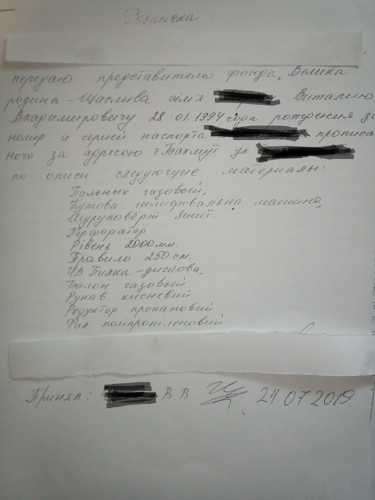 Расписка
передаю представителю фонда „Велика
родина - Щаслива сімя Виталию
Владимировичу 28.01.1994 года рождения за
номер и серией паспорта прописа
ного за адресою г Бахмут ул
по описи следующие материалы:
Пальник газовый,
Кутова шліфовальна машина,
Шуруповёрт
Перфоратор
Рівень 2000 мм.
Правило 250 см.
Пилка - дискова,
Балон газовый
Рукав кисневий
Редуктор пропановий
Фал поліпропіленовий
Принял: В В 24 07 2019